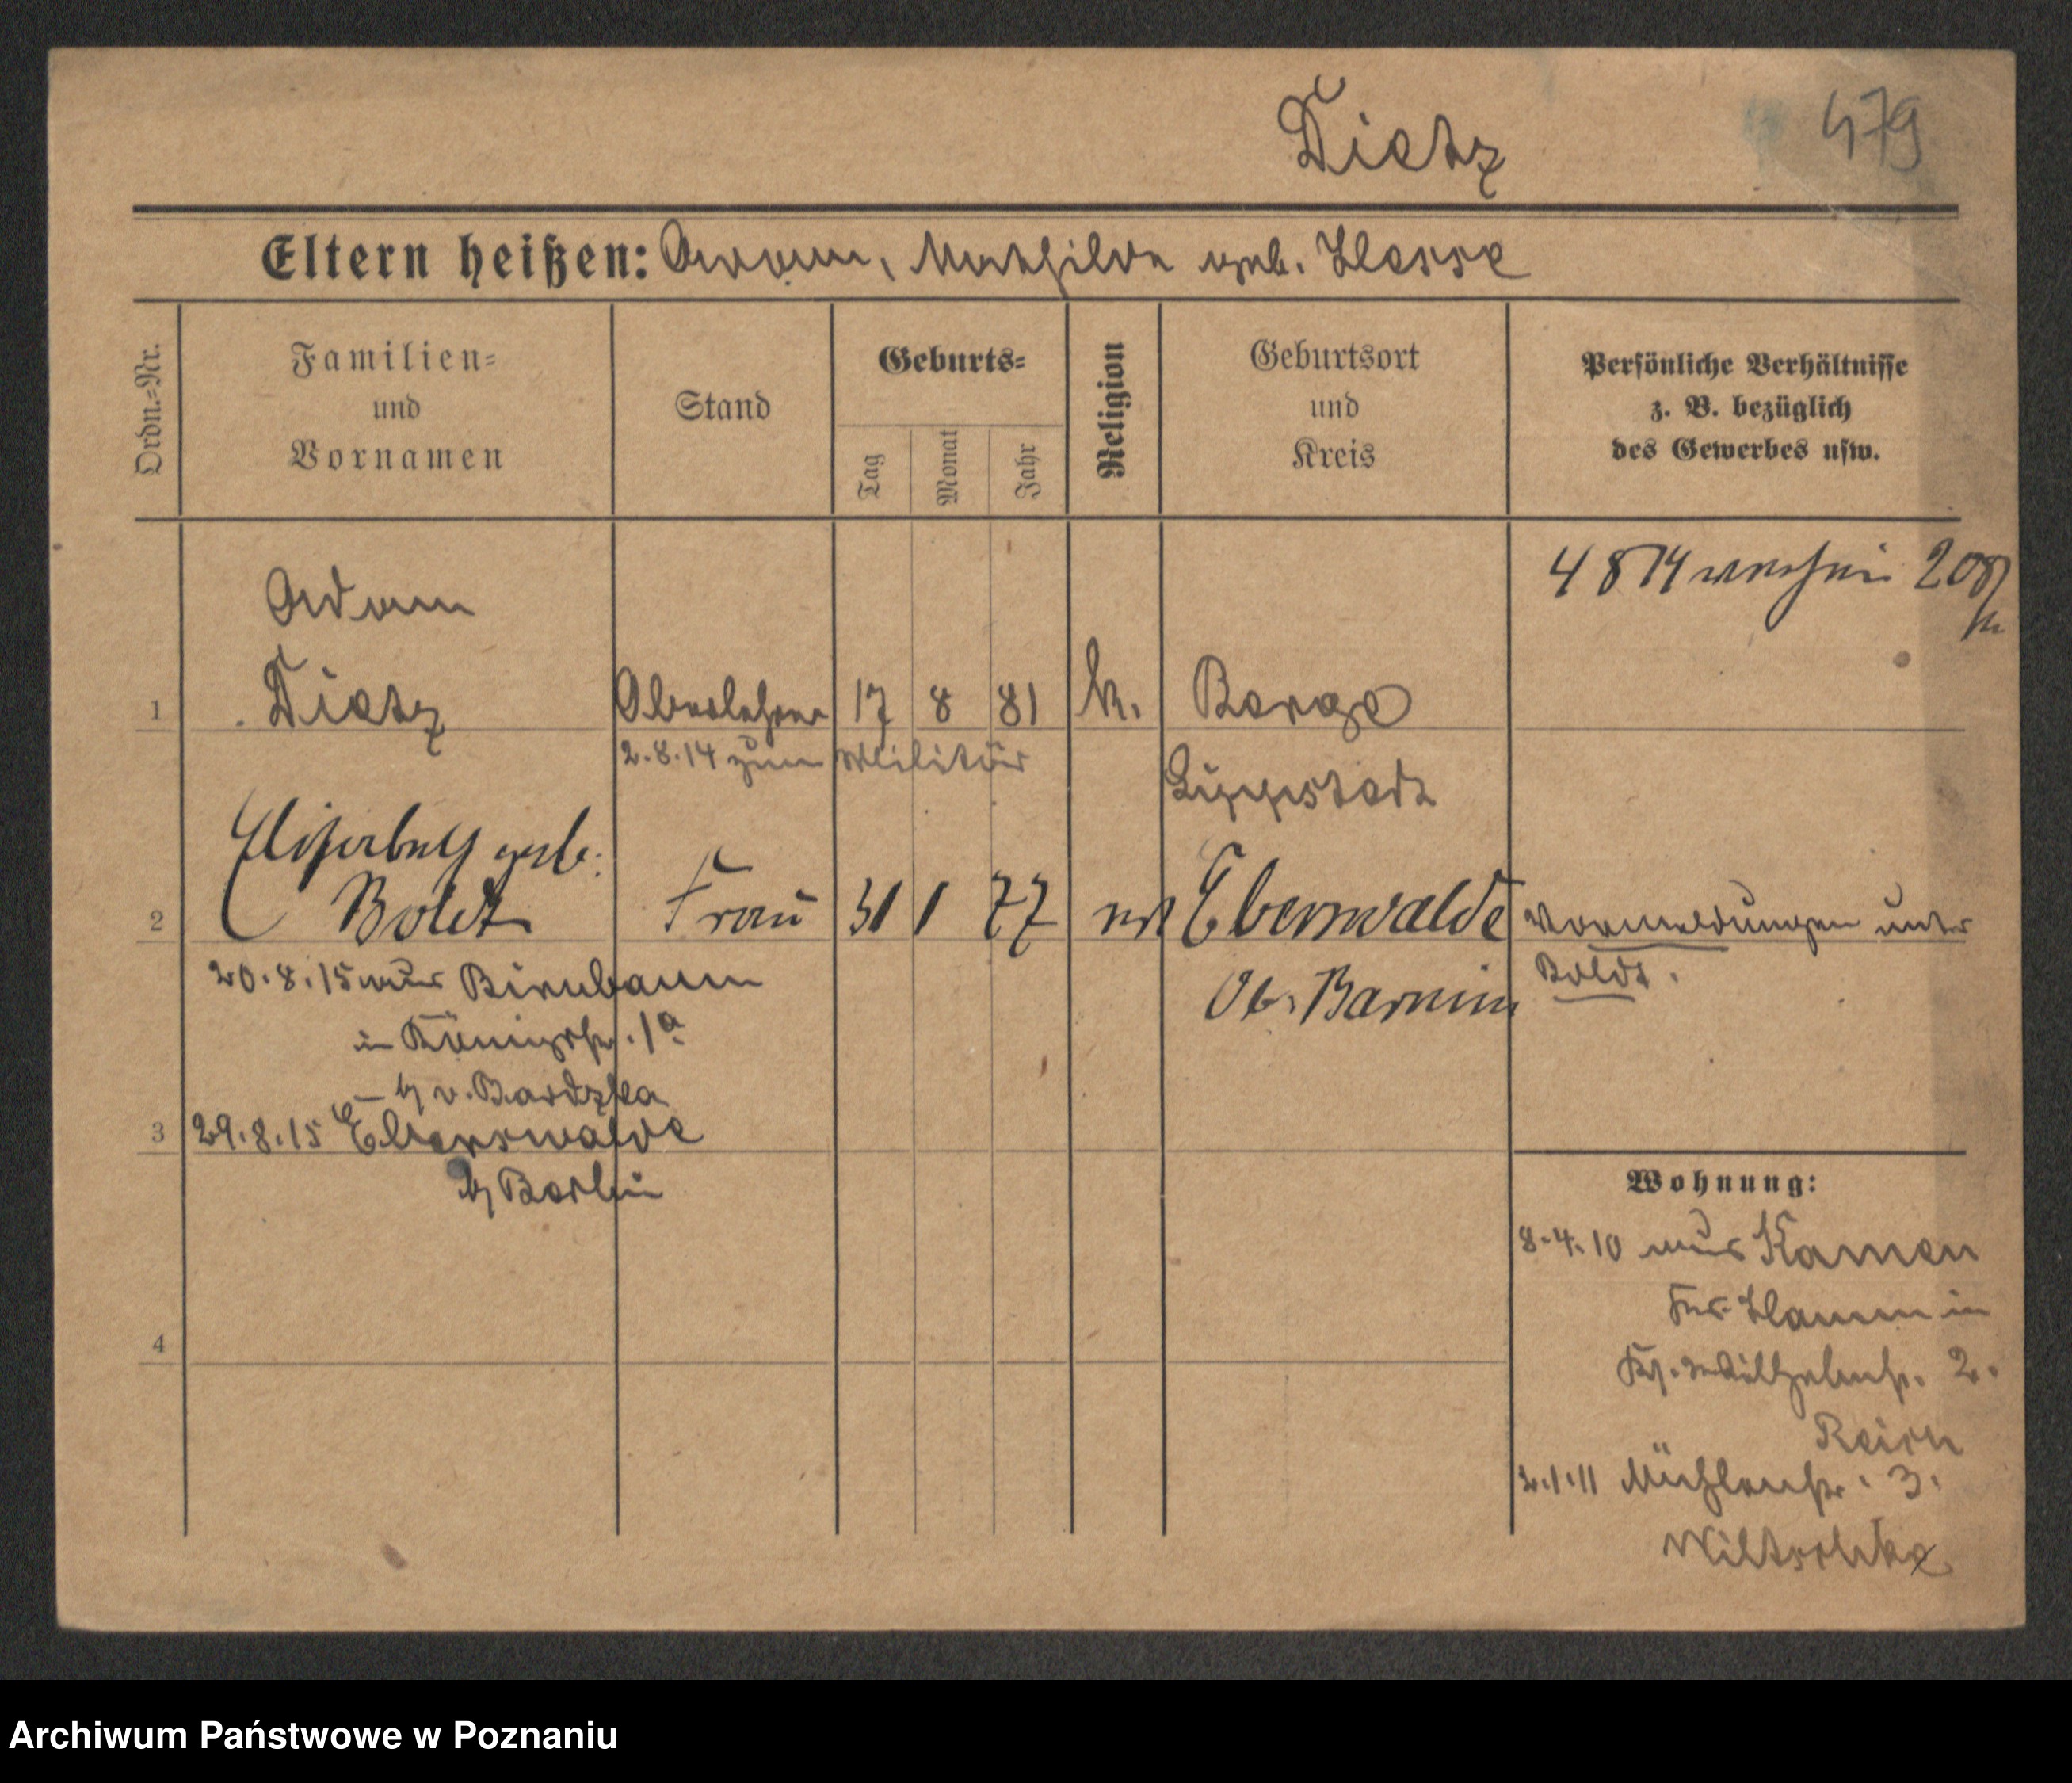 Dietz 479
Eltern heißen: Adam, Mathilde geb. Hesse
Ordn.=Nr.
Familien=
und
Vornamen
Stand
Geburts=
Tag
Monat
Jahr
Religion
Geburtsort
und
Kreis
Persönliche Verhältnisse
z. B. bezüglich
des Gewerbes usw.
4 8 14
Adam
1 Dietz Oberlehrer 17 8 81 k. Berge
2.8.14 zum Militär Lippstadt
Elisabeth geb.
2 Boldt Frau 31 1 77 Eberswalde Vormeldungen unter
20.8.15 aus Birnbaum Ob. Barnim Boldt.
in Königstr. 1a
b/ v. Bardzka
3 29.8.15 Eberswalde
b/ Berlin
4
Wohnung:
8.4.10 aus Kamen
Krs. Hamm in
Kl. Wilhelmstr. 2.
2.1.11 Mühlenstr. 3.
Wiltschke
Archiwum Państwowe w Poznaniu